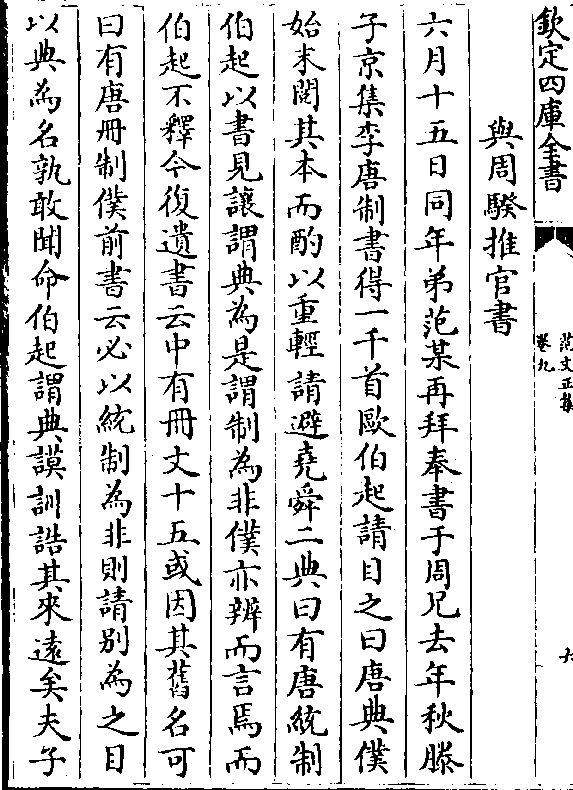 欽定四庫全書
范文正集
卷九
六
與周騤推官書
六月十五日同年弟范某再拜奉書于周兄去年秋滕
子京集李唐制書得一千首歐伯起請目之曰唐典僕
始未閱其本而酌以重輕請避堯舜二典曰有唐統制
伯起以書見讓謂典為是謂制為非僕亦辨而言焉而
伯起不釋今復遺書云中有冊文十五或因其舊名可
曰有唐冊制僕前書云必以統制為非則請別為之目
以典為名孰敢聞命伯起謂典謨訓誥其來遠矣夫子